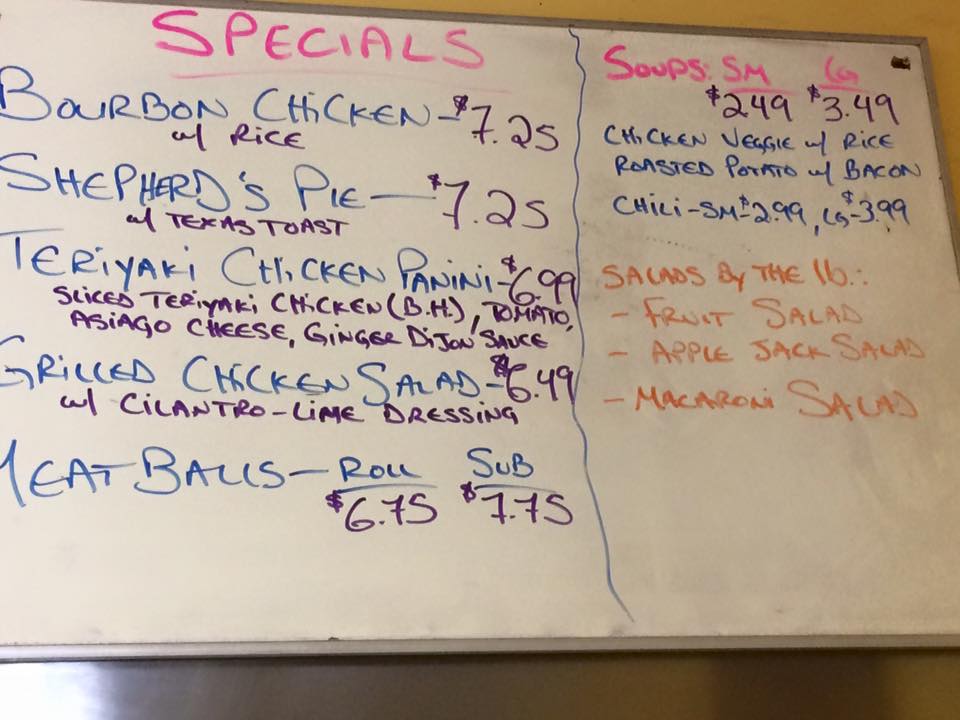 SPECIALS
BOURBON CHICKEN - $7.25
w/ RICE
SHEPHERD'S PIE — $7.25
w/ TEXAS TOAST
TERIYAKI CHICKEN PANINI - $6.99
SLICED TERIYAKI CHICKEN (B.H.), TOMATO,
ASIAGO CHEESE, GINGER DIJON SAUCE
GRILLED CHICKEN SALAD - $6.49
w/ CILANTRO-LIME DRESSING
MEATBALLS — ROLL SUB
$6.75 $7.75
SOUPS: SM LG
$2.49 $3.49
CHICKEN VEGGIE w/ RICE
ROASTED POTATO w/ BACON
CHILI - SM - $2.99, LG - $3.99
SALADS By THE lb.:
- FRUIT SALAD
- APPLE JACK SALAD
- MACARONI SALAD